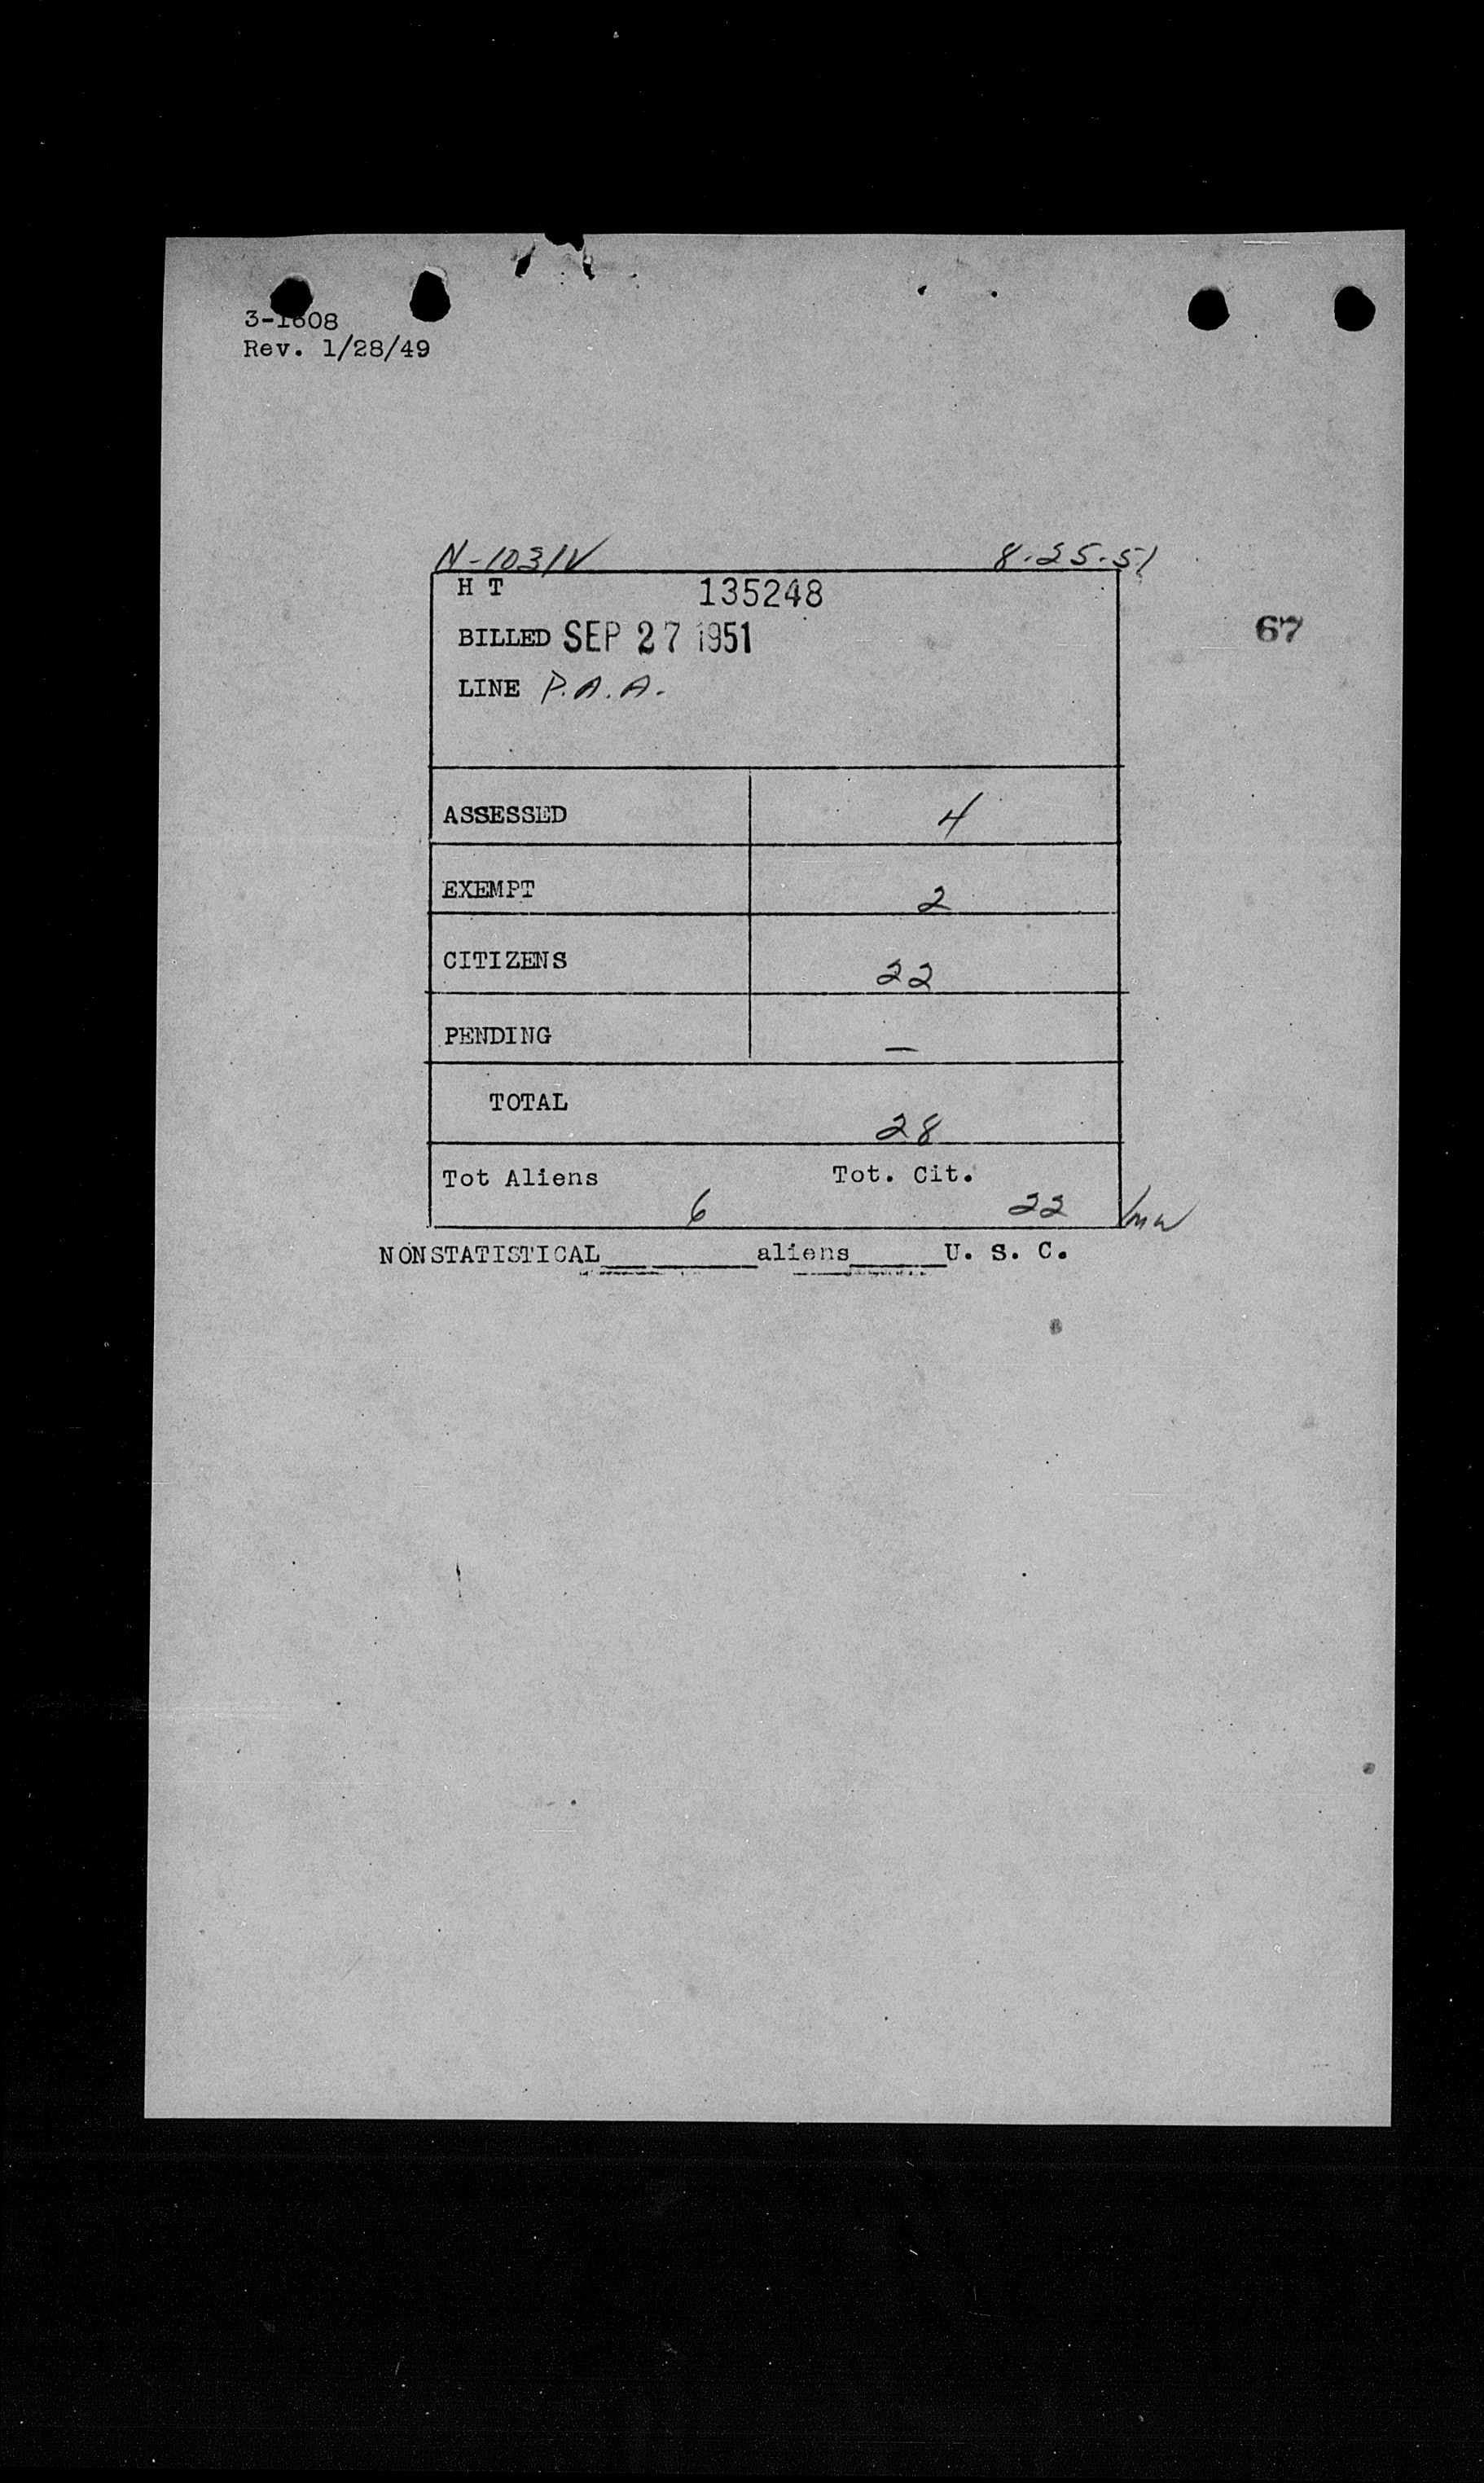 3-1608
Rev. 1/28/49
N-1031V 8-25-51
H T 135248
BILLED SEP 27 1951
67
LINE P.A.A.
ASSESSED 4
EXEMPT 2
CITIZENS 22
PENDING —
TOTAL 28
Tot Aliens 6 Tot. Cit. 22
NONSTATISTICAL________aliens_____U. S. C.